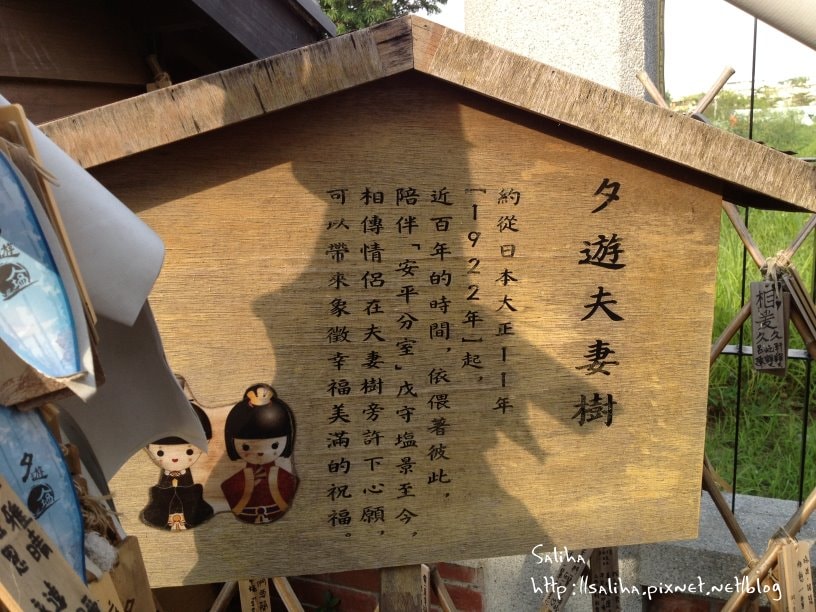 夕遊夫妻樹
約從日本大正11年
[1922年]起，
近百年的時間，依偎著彼此，
陪伴「安平分室」戍守塩景至今，
相傳情侶在夫妻樹旁許下心願，
可以帶來象徵幸福美滿的祝福。
夕遊
相愛久久
Saliha
http://saliha.pixnet.net/blog